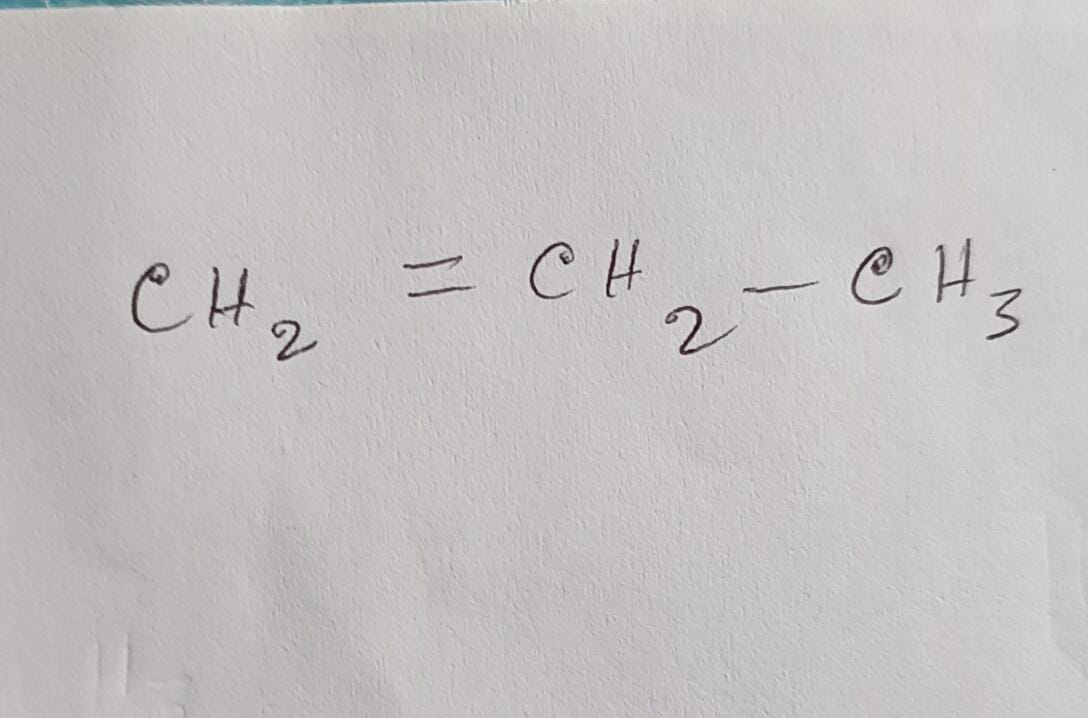 CH₂ = CH₂ - CH₃